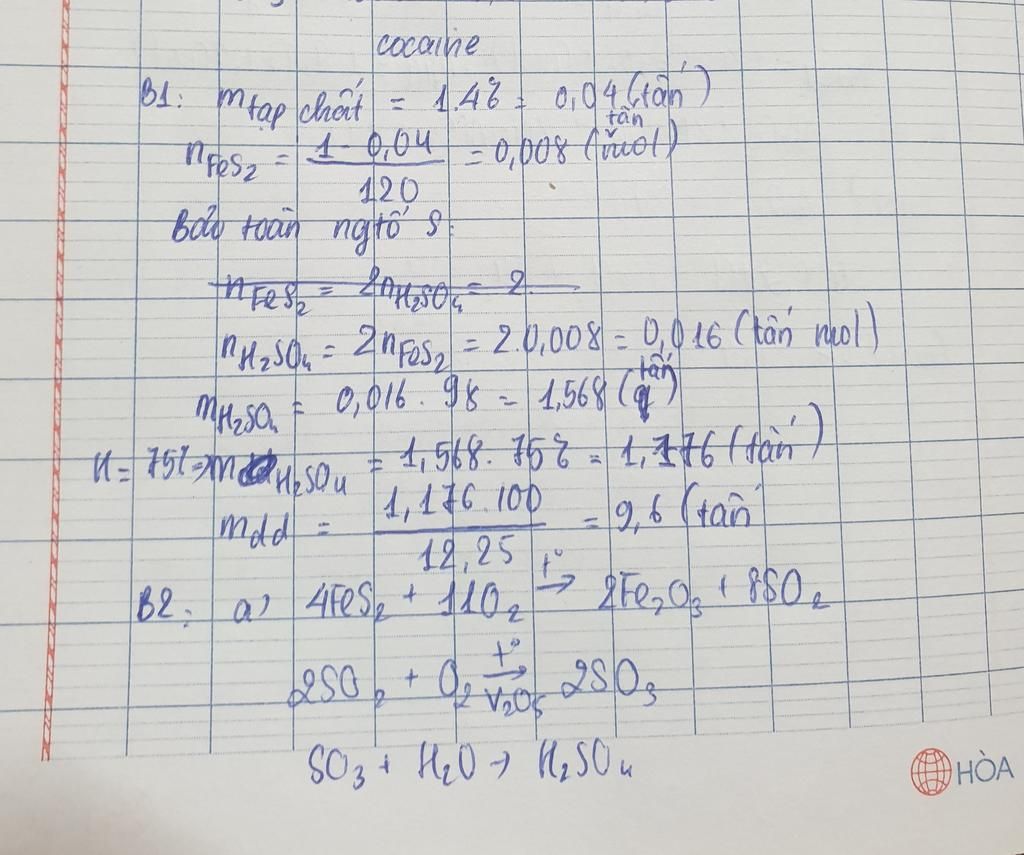 cocaine
B1: m tạp chất = 1.4% = 0,04 (tấn)
nFeS2 = (1 - 0,04)/120 = 0,008 (tấn mol)
Bảo toàn ngtố S:
nFeS2 = 2nH2SO4 = 2.
nH2SO4 = 2nFeS2 = 2.0,008 = 0,016 (tấn mol)
mH2SO4 = 0,016 . 98 = 1,568 (tấn)
H = 75% => mH2SO4 = 1,568. 75% = 1,176 (tấn)
mdd = (1,176.100)/12,25 = 9,6 (tấn
B2: a) 4FeS2 + 11O2 t°→ 2Fe2O3 + 8SO2
2SO2 + O2 t°→ V2O5 2SO3
SO3 + H2O → H2SO4
HÒA